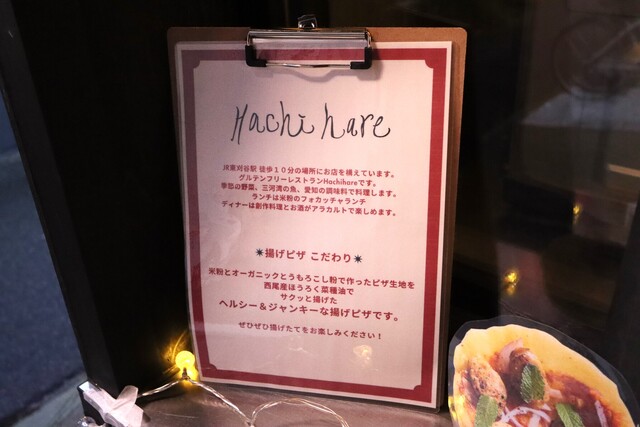 Hachi hare
JR東刈谷駅 徒歩１０分の場所にお店を構えています。
グルテンフリーレストランHachihareです。
季節の野菜、三河湾の魚、愛知の調味料で料理します。
ランチは米粉のフォカッチャランチ
ディナーは創作料理とお酒がアラカルトで楽しめます。
✷揚げピザ こだわり✷
米粉とオーガニックとうもろこし粉で作ったピザ生地を
西尾産ほうろく菜種油で
サクッと揚げた
ヘルシー＆ジャンキーな揚げピザです。
ぜひぜひ揚げたてをお楽しみください！